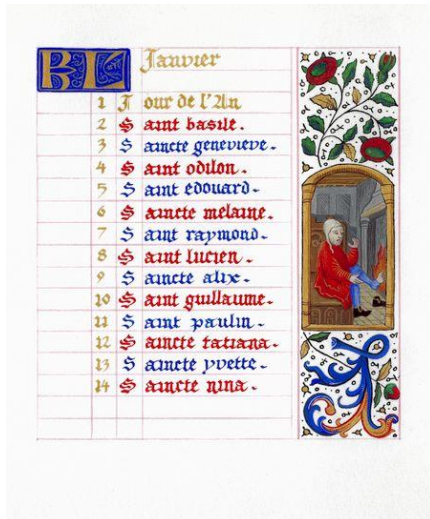 BL Janvier
1 Jour de l'An
2 Saint basile.
3 Saincte genevieve.
4 Saint odilon.
5 Saint edouard.
6 Saincte melaine.
7 Saint raymond.
8 Saint lucien.
9 Saincte alix.
10 Saint guillaume.
11 Saint paulin.
12 Saincte tatiana.
13 Saincte yvette.
14 Saincte nina.